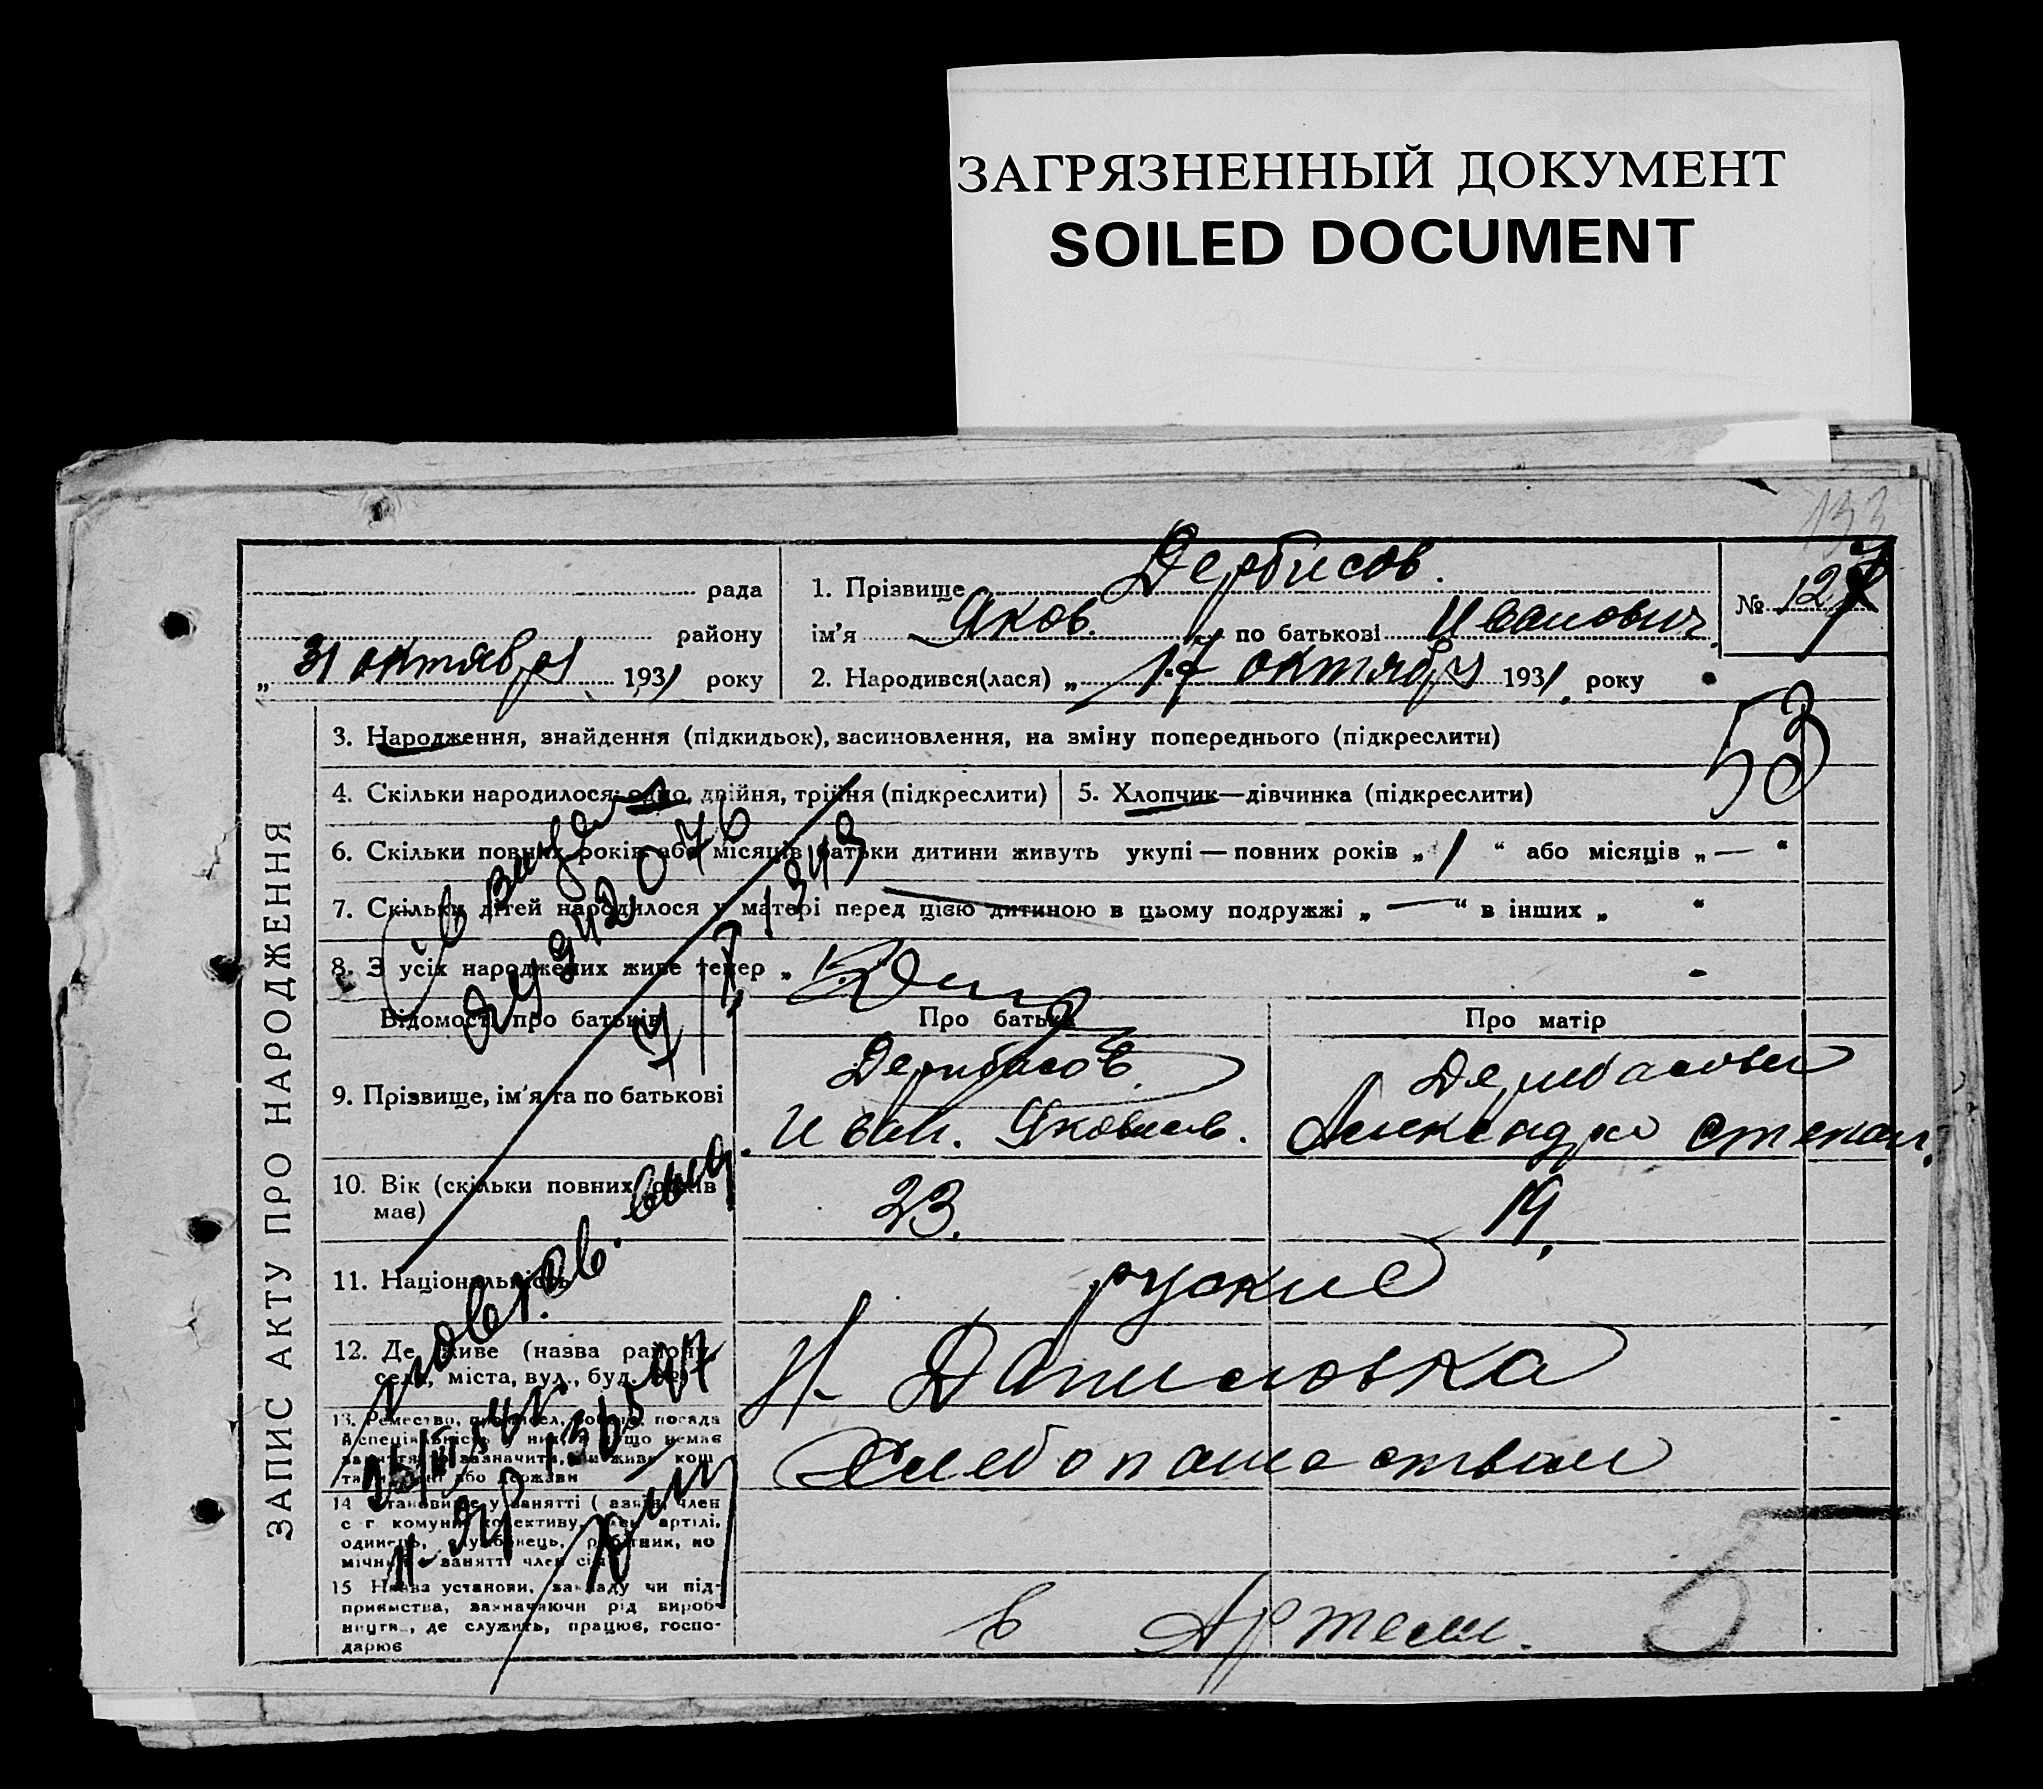 ЗАГРЯЗНЕННЫЙ ДОКУМЕНТ
SOILED DOCUMENT
133
ЗАПИС АКТУ ПРО НАРОДЖЕННЯ
рада
району
„ 31 октября 1931 року
1. Прізвище Дербисов.
ім’я Яков. по батькові Иванович
2. Народився(лася) „ 17 октября 1931. року
№ 127
53
3. Народження, знайдення (підкидьок), засиновлення, на зміну попереднього (підкреслити)
4. Скільки народилося: одно, двійня, трійня (підкреслити)
5. Хлопчик—дівчинка (підкреслити)
6. Скільки повних років або місяців батьки дитини живуть укупі — повних років „ 1 “ або місяців „ — “
7. Скільки дітей народилося у матері перед цією дитиною в цьому подружжі „ — “ в інших „ “
8. З усіх народжених живе тепер „
Відомості про батьків
Про батька
Про матір
9. Прізвище, ім’я та по батькові
Дерибасов.
Иван. Яковлев.
Дерибасова
Александра Степан.
10. Вік (скільки повних років
має)
23.
19.
11. Національність
руские
12. Де живе (назва району,
села, міста, вул., буд. №)
Н. Даниловка
13. Ремество, промисел, робота, посада
й спеціяльність у них, а якщо немає
заняття то зазначити, чи живе кош
там рідні або держави
Хлебопашеством
14 Становище у занятті ( азяїн, член
с г комуни колективу, член артілі,
одинець, службовець, робітник, по
мічник в занятті член сім
15 Назва установи, закладу чи під-
приємства, зазначаючи рід вироб-
ництв., де служить, працює, госпо-
дарює
в Артели.
5